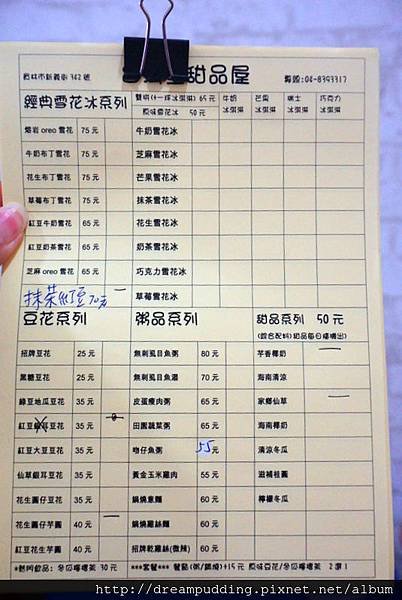 員林市新義街342號 甜品屋 專線:04-8393317
經典雪花冰系列 雙拼(十一坪冰淇淋) 65元 牛奶冰淇淋 芒果冰淇淋 瑞士冰淇淋 巧克力冰淇淋
原味雪花冰 50元
熔岩oreo雪花 75元 牛奶雪花冰
牛奶布丁雪花 75元 芝麻雪花冰
花生布丁雪花 75元 芒果雪花冰
草莓布丁雪花 75元 抹茶雪花冰
紅豆牛奶雪花 65元 花生雪花冰
紅豆奶茶雪花 65元 奶茶雪花冰
芝麻oreo雪花 65元 巧克力雪花冰
抹茶紅豆70元 草莓雪花冰
豆花系列 粥品系列 甜品系列 50元
(綜合配料)甜品每日樓梯出)
招牌豆花 25元 無刺虱目魚粥 80元 芋香椰奶
黑糖豆花 25元 無刺虱目魚湯 70元 海南清涼
綠豆地瓜豆花 35元 皮蛋瘦肉粥 65元 家鄉仙草
紅豆銀耳豆花 35元 田園蔬菜粥 65元 海南椰奶
紅豆大豆豆花 35元 吻仔魚粥 55元 清涼冬瓜
仙草銀耳豆花 35元 黃金玉米雞肉 55元 滋補桂圓
花生圓仔豆花 35元 鍋燒意麵 60元 檸檬冬瓜
花生圓仔芋圓 40元 鍋燒雞絲麵 60元
紅豆花生芋圓 40元 招牌乾雞絲(微辣) 60元
*熱門飲品: 冬瓜檸檬茶 30元 ***套餐*** 餐點(粥/鍋燒)+15元 原味豆花/冬瓜檸檬茶 2選1
http://dreampudding.pixnet.net/album